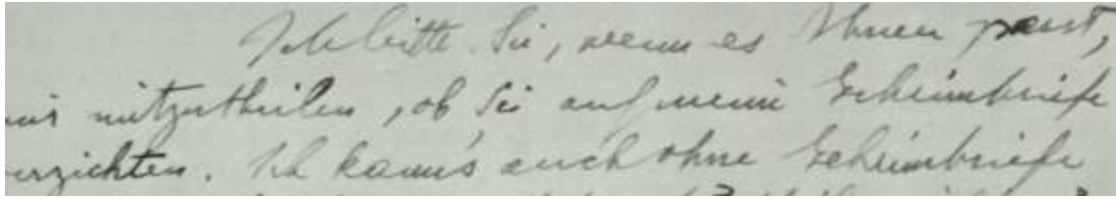 Ich bitte Sie, wenn es Ihnen passt,
mir mitzutheilen, ob Sie auf meine Geheimbriefe
verzichten. Ich kann's auch ohne Geheimbriefe